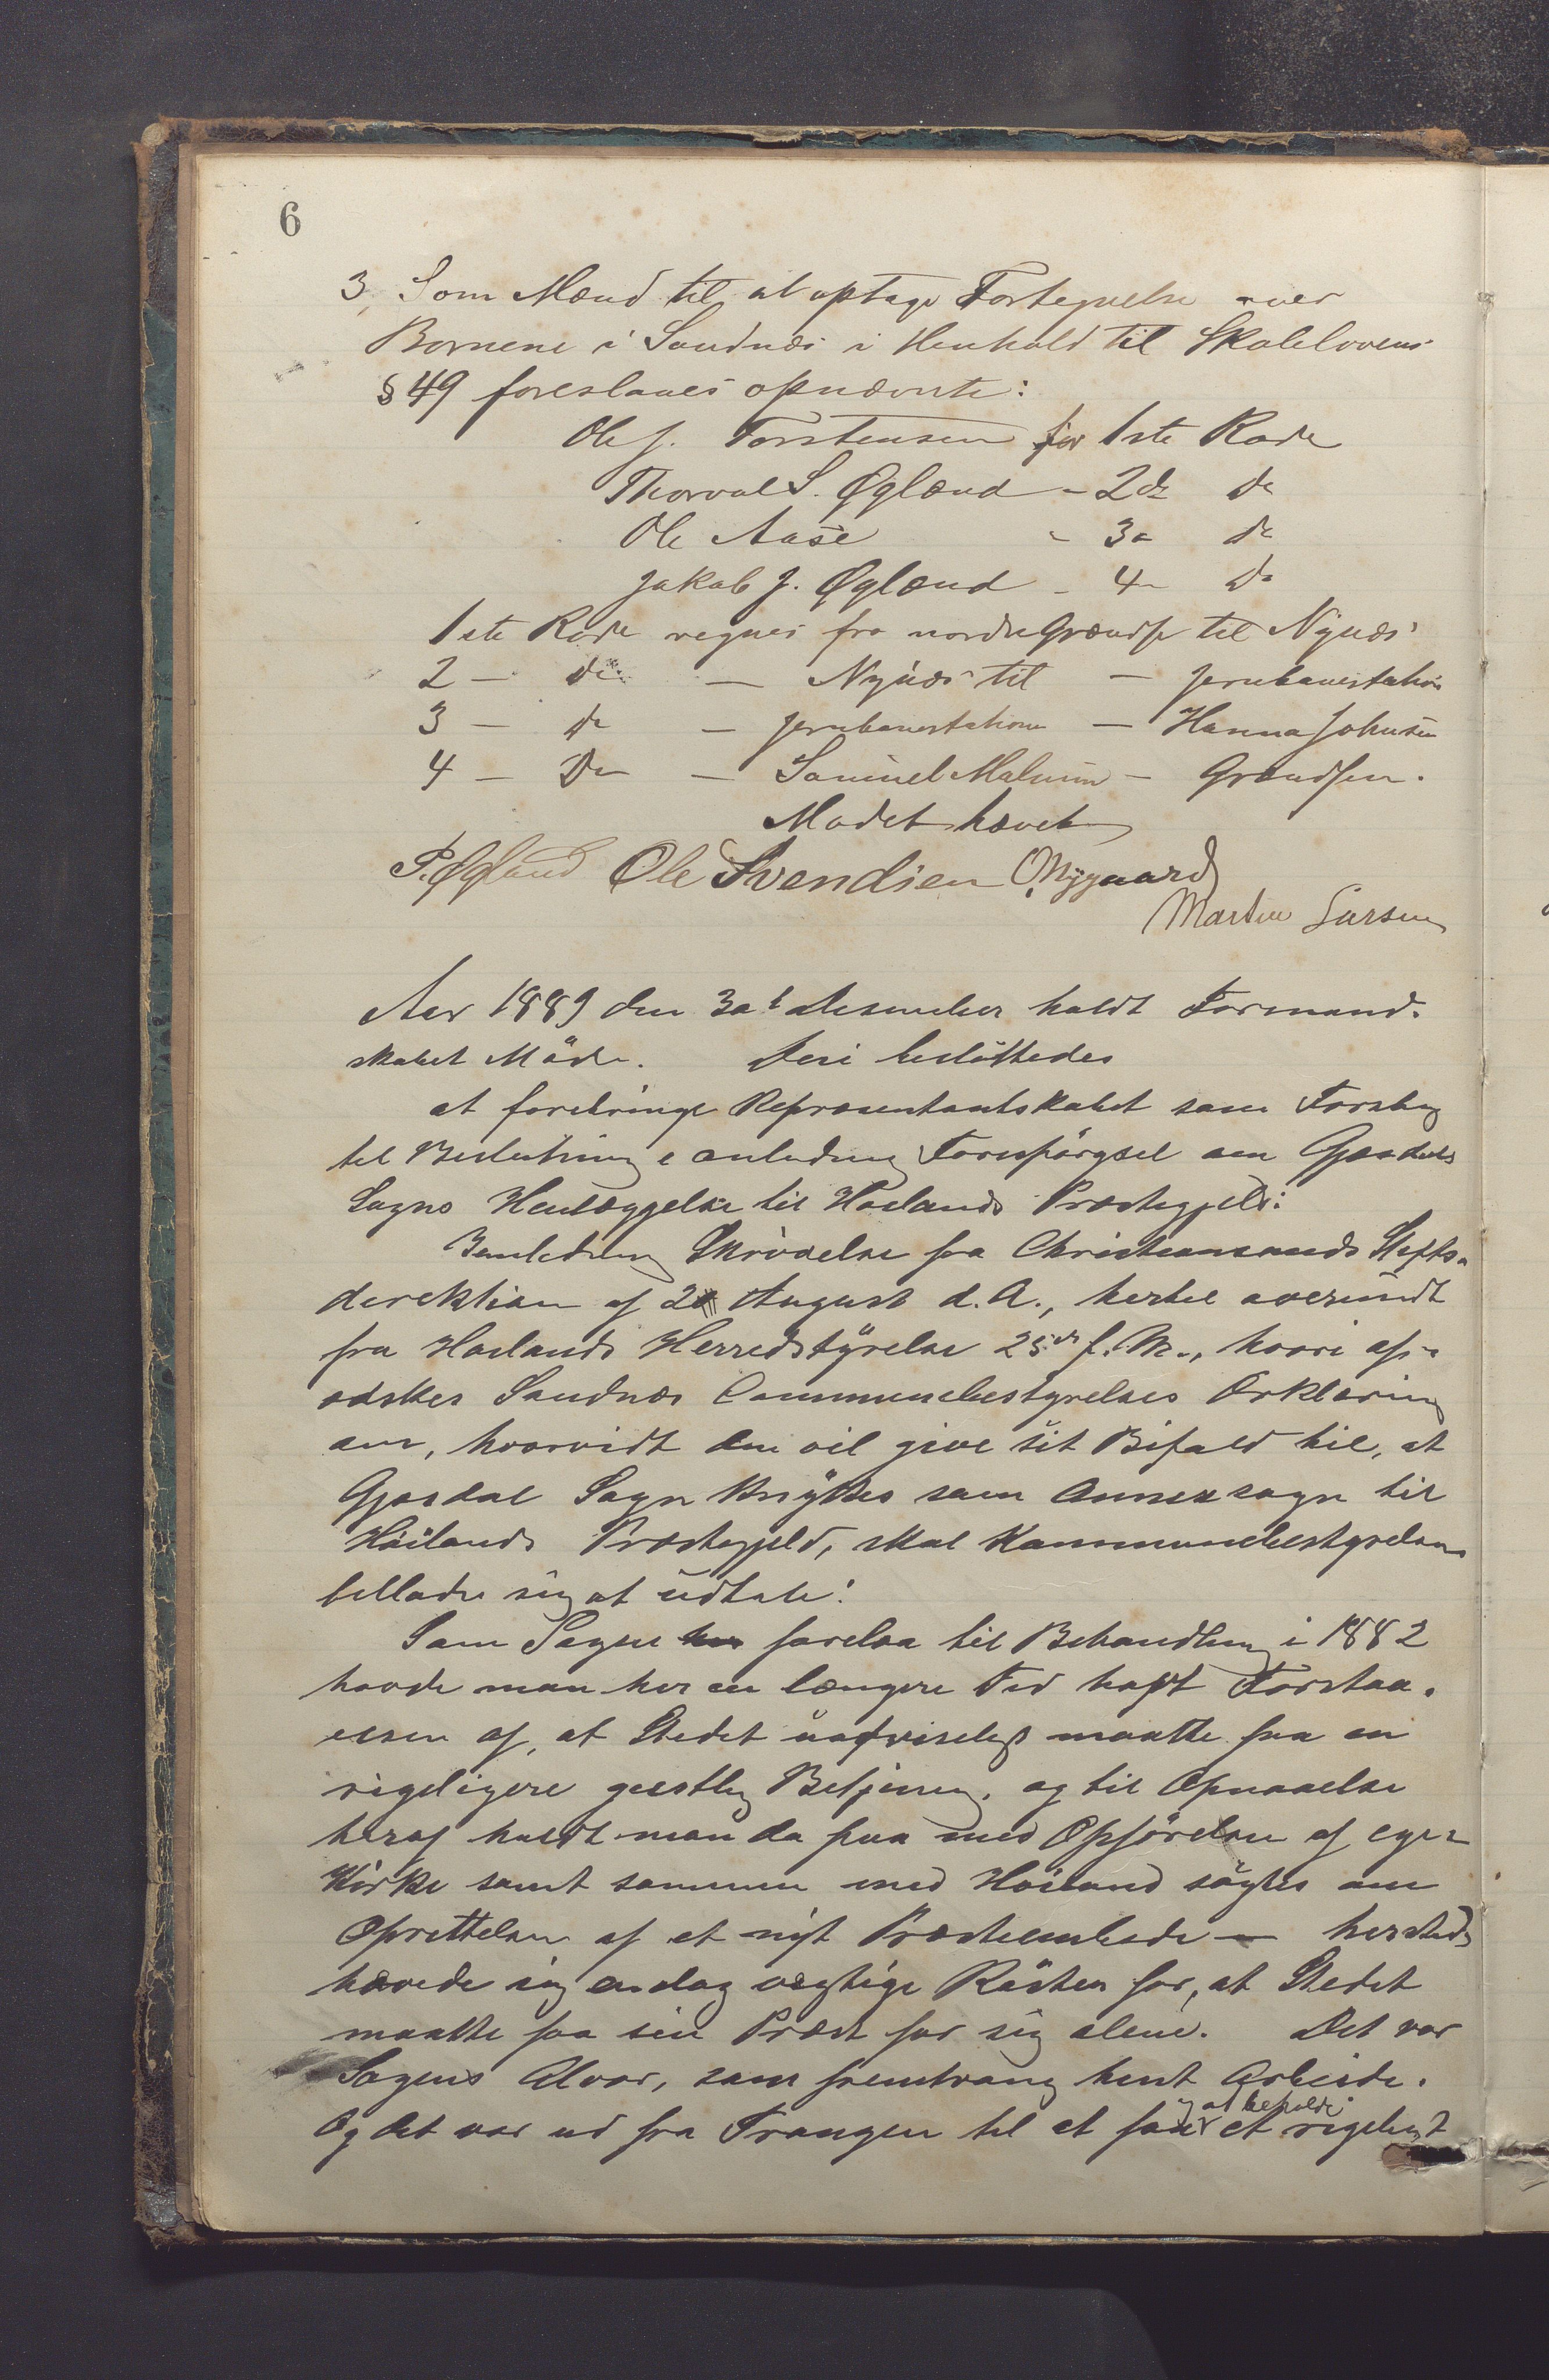 6
3, Som Mænd til at optage Fortegnelse over
Bornene i Sandnæs i Henhold til Skolelovens
§ 49 foreslaaes opnævnte:
Ole J. Torstensen for 1ste Rode
Thorval S. Øglænd - 2de do
Ole Aase - 3- do
Jakob J. Øglænd - 4- do
1ste Rode regnes fra nordre Grændse til Nynæs
2 - do - Nynæs til - Jernbanestation
3 - do - Jernbanestation - Hanna Johnsen
4 - Do - Samuel Malmin - Grændsen.
Modet hævet
P. Øglænd Ole Svendsen O. Nygaard
Martin Larsen
Aar 1889 den 30te December holdt Formand-
skabet Möde. Deri beslöttedes
at forebringe Repræsentantskabet som Forslag
til Beslutning i anledning Forespörgsel om Gjesdals
Sogns Henlæggelse til Höilands Præstegjeld:
I anledning Skrivelse fra Christiansands Stifts-
direktion af 2 August d. A., hertil oversendt
fra Höilands Herredstyrelse 25de f. M., hvori af-
æskes Sandnæs Communebestyrelses Erklæring
om, hvorvidt den vil give sit Bifald til, at
Gjesdal Sogn knyttes som Annexsogn til
Höilands Præstegjeld, skal Kommunebestyrelsen
tillade sig at udtale:
Som Sagen forelaa til Behandling i 1882
havde man her en længere Tid havt Forstaa-
elsen af, at Stedet uafviseligt maatte faa en
rigeligere geistlig Betjening, og til Opnaaelse
heraf holdt man da paa med Opförelse af egen
Kirke samt sammen med Höiland sögtes om
Oprettelsen af et nyt Præsteembede — hersteds
hævede sig endog vegtige Röster for, at Stedet
maatte faa sin Præst for sig alene. Det var
Sagens Alvor, som fremtvang hint Arbeide.
Og det var ud fra Trangen til at faa og at beholde et rigeligt